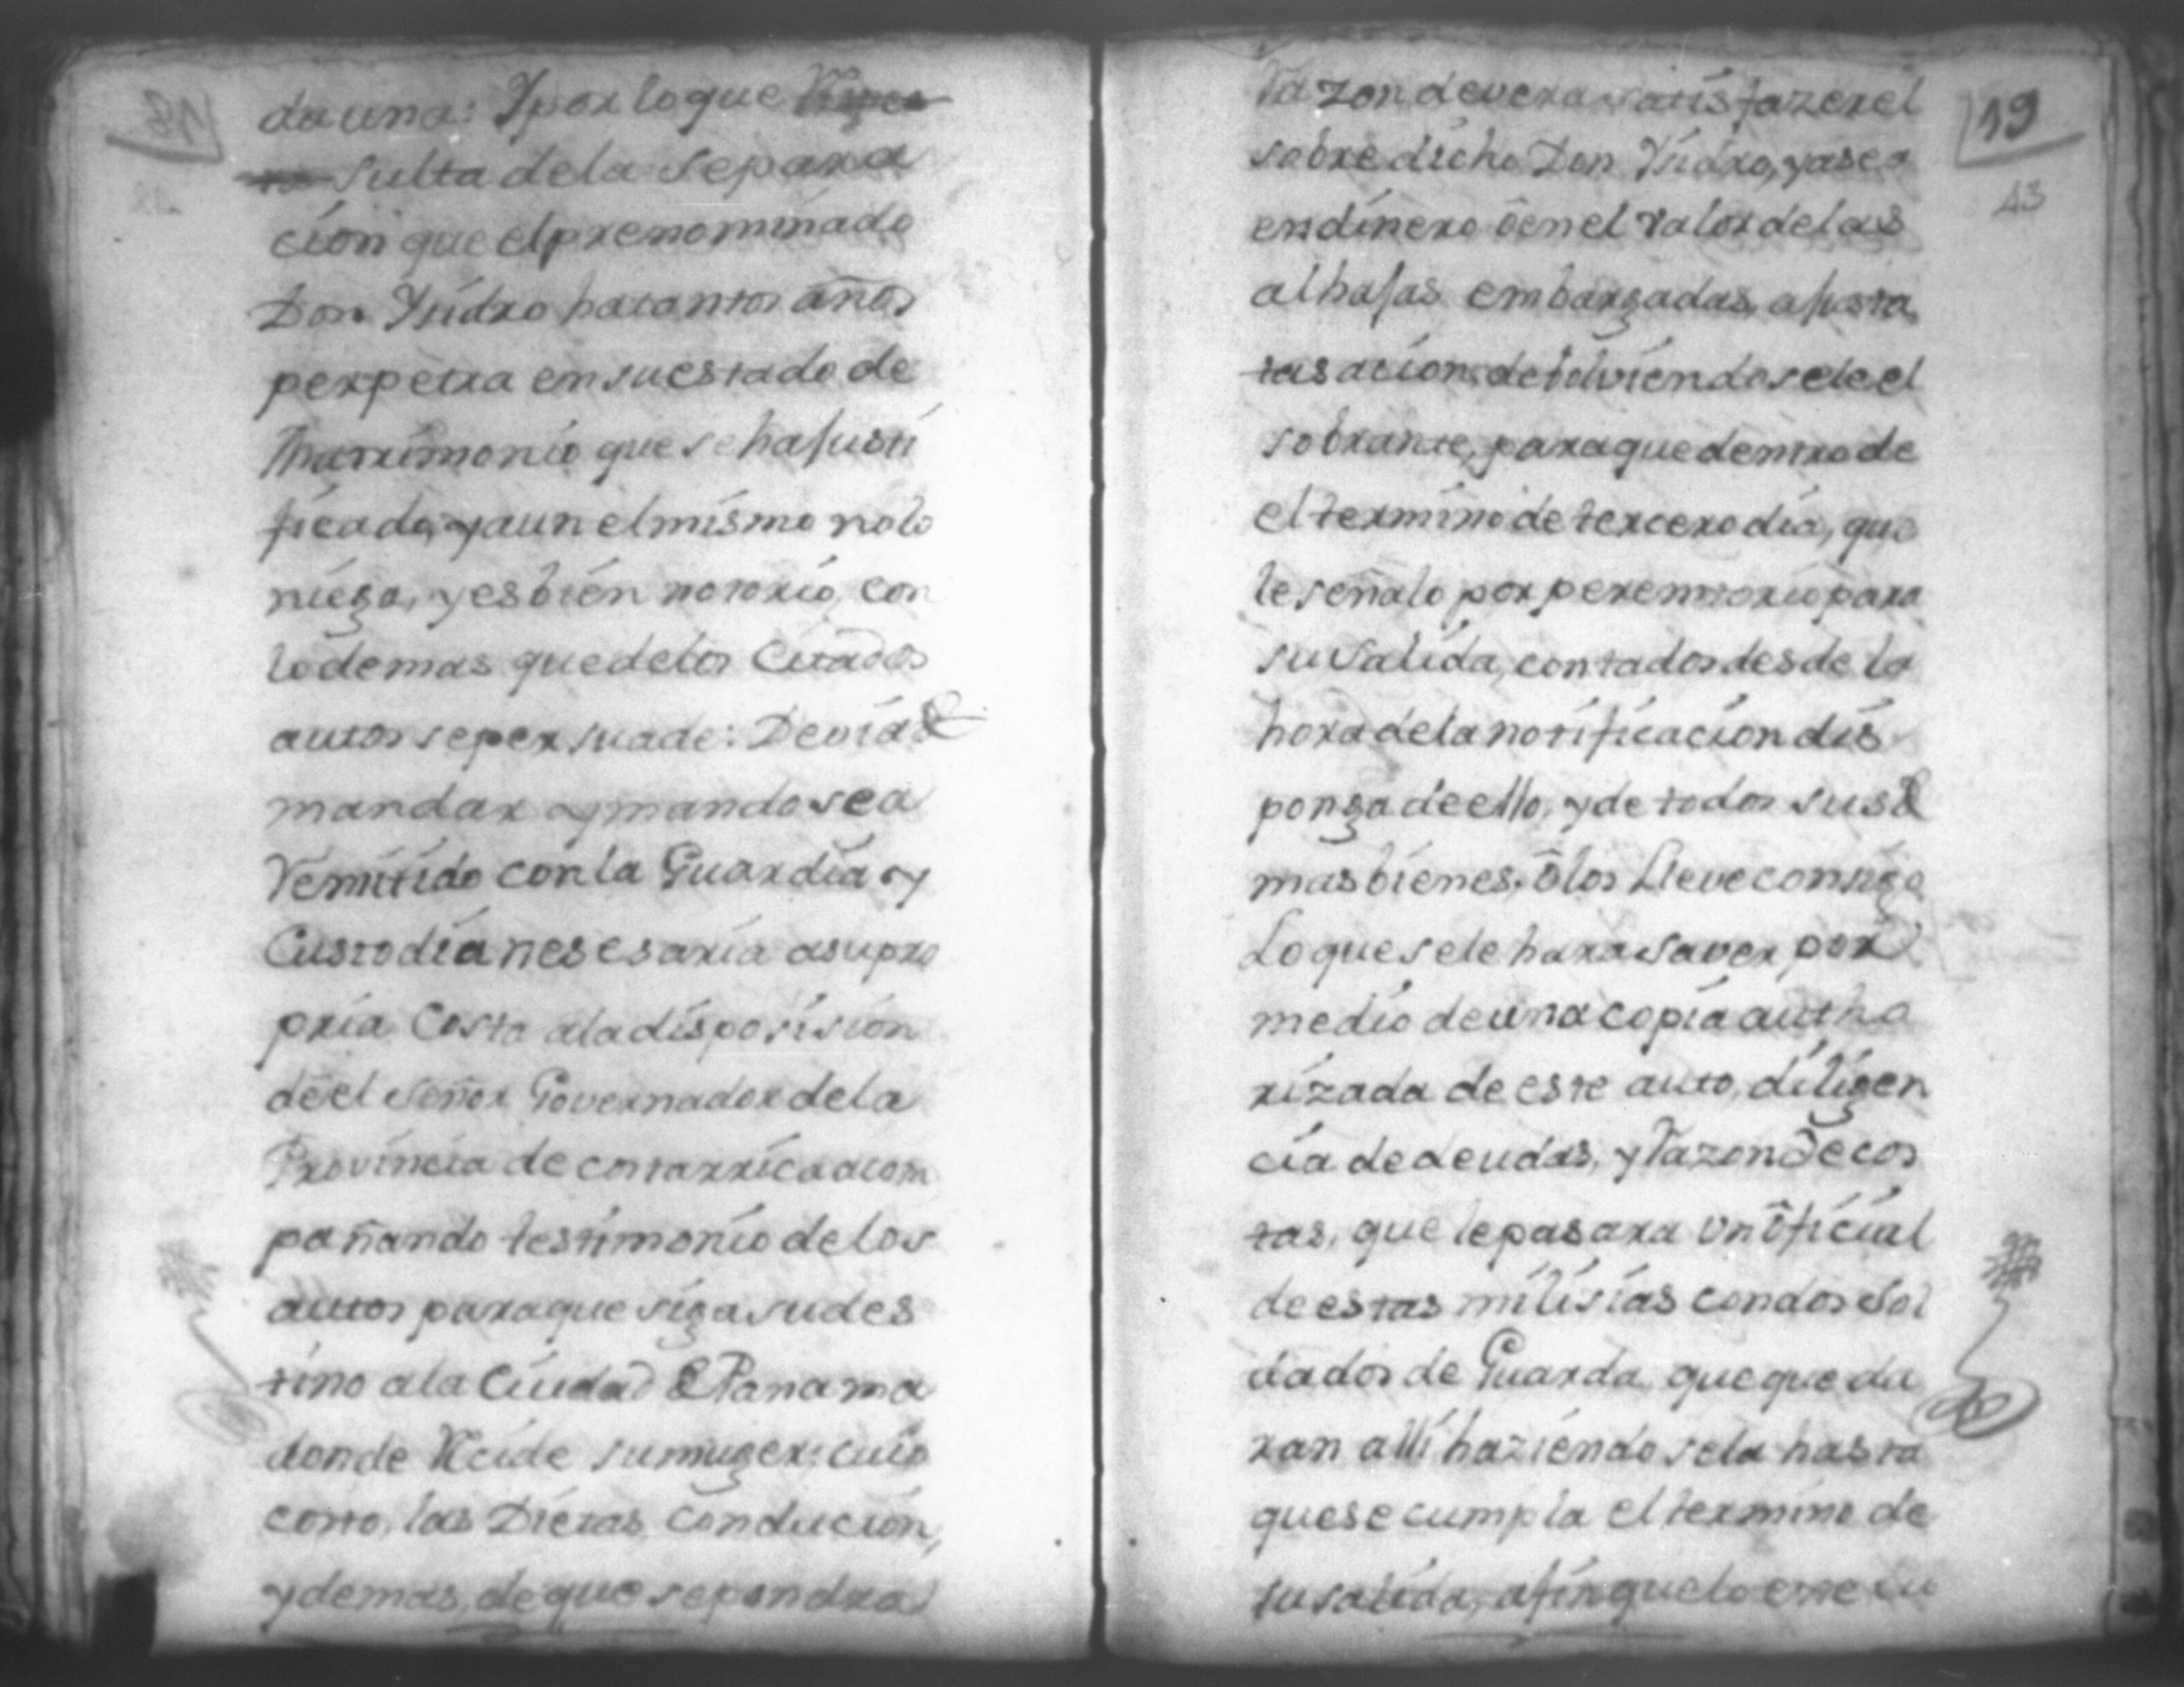 da una: Y por lo que
sulta dela separa
cion que el prenominado
Don Ysidro ha tantos años
perpetra en su estado de
Matrimonio que se ha justi
ficado, y aun el mismo no lo
niega, y es bien notorio, con
lo demas que delos citados
autos se persuade: Devia
mandar y mando sea
Remitido con la Guardia y
Custodia nesesaria a su pro
pria Costa ala disposision
de el Señor Governador dela
Provincia de costarrica acom
pañando testimonio de los
autos para que siga su des
tino ala Ciudad de Panama
donde Recide su muger: cuio
costo, las Dietas, Conducion,
y demas, de que se pondra
Razon devera satisfazer el
sobre dicho Don Ysidro, ya sea
en dinero ô en el valor de las
alhajas embargadas, a justa
tasacion, debolviendosele el
sobrante, para que dentro de
el termino de tercero dia, que
le señalo por peremtorio para
su salida, contados desde la
hora dela notificacion dis
ponga de ello, y de todos sus de
mas bienes, ô los Lleve consigo
Lo que se le hara saver por
medio de una copia autho
rizada de este auto, diligen
cia de deudas, y Razon de cos
tas, que le pasara un ôficial
de estas milisias con dos Sol
dados de Guarda, que queda
ran alli haziendosela hasta
que se cumpla el termino de
su salida, a fin que lo execu
19
13